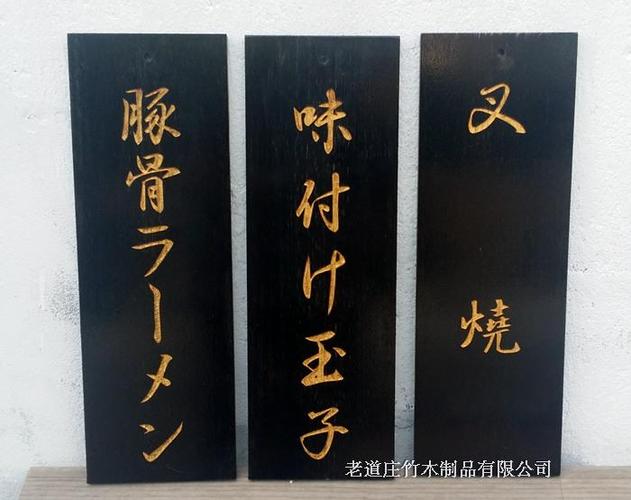 豚骨ラーメン
味付け玉子
叉燒
老道庄竹木制品有限公司